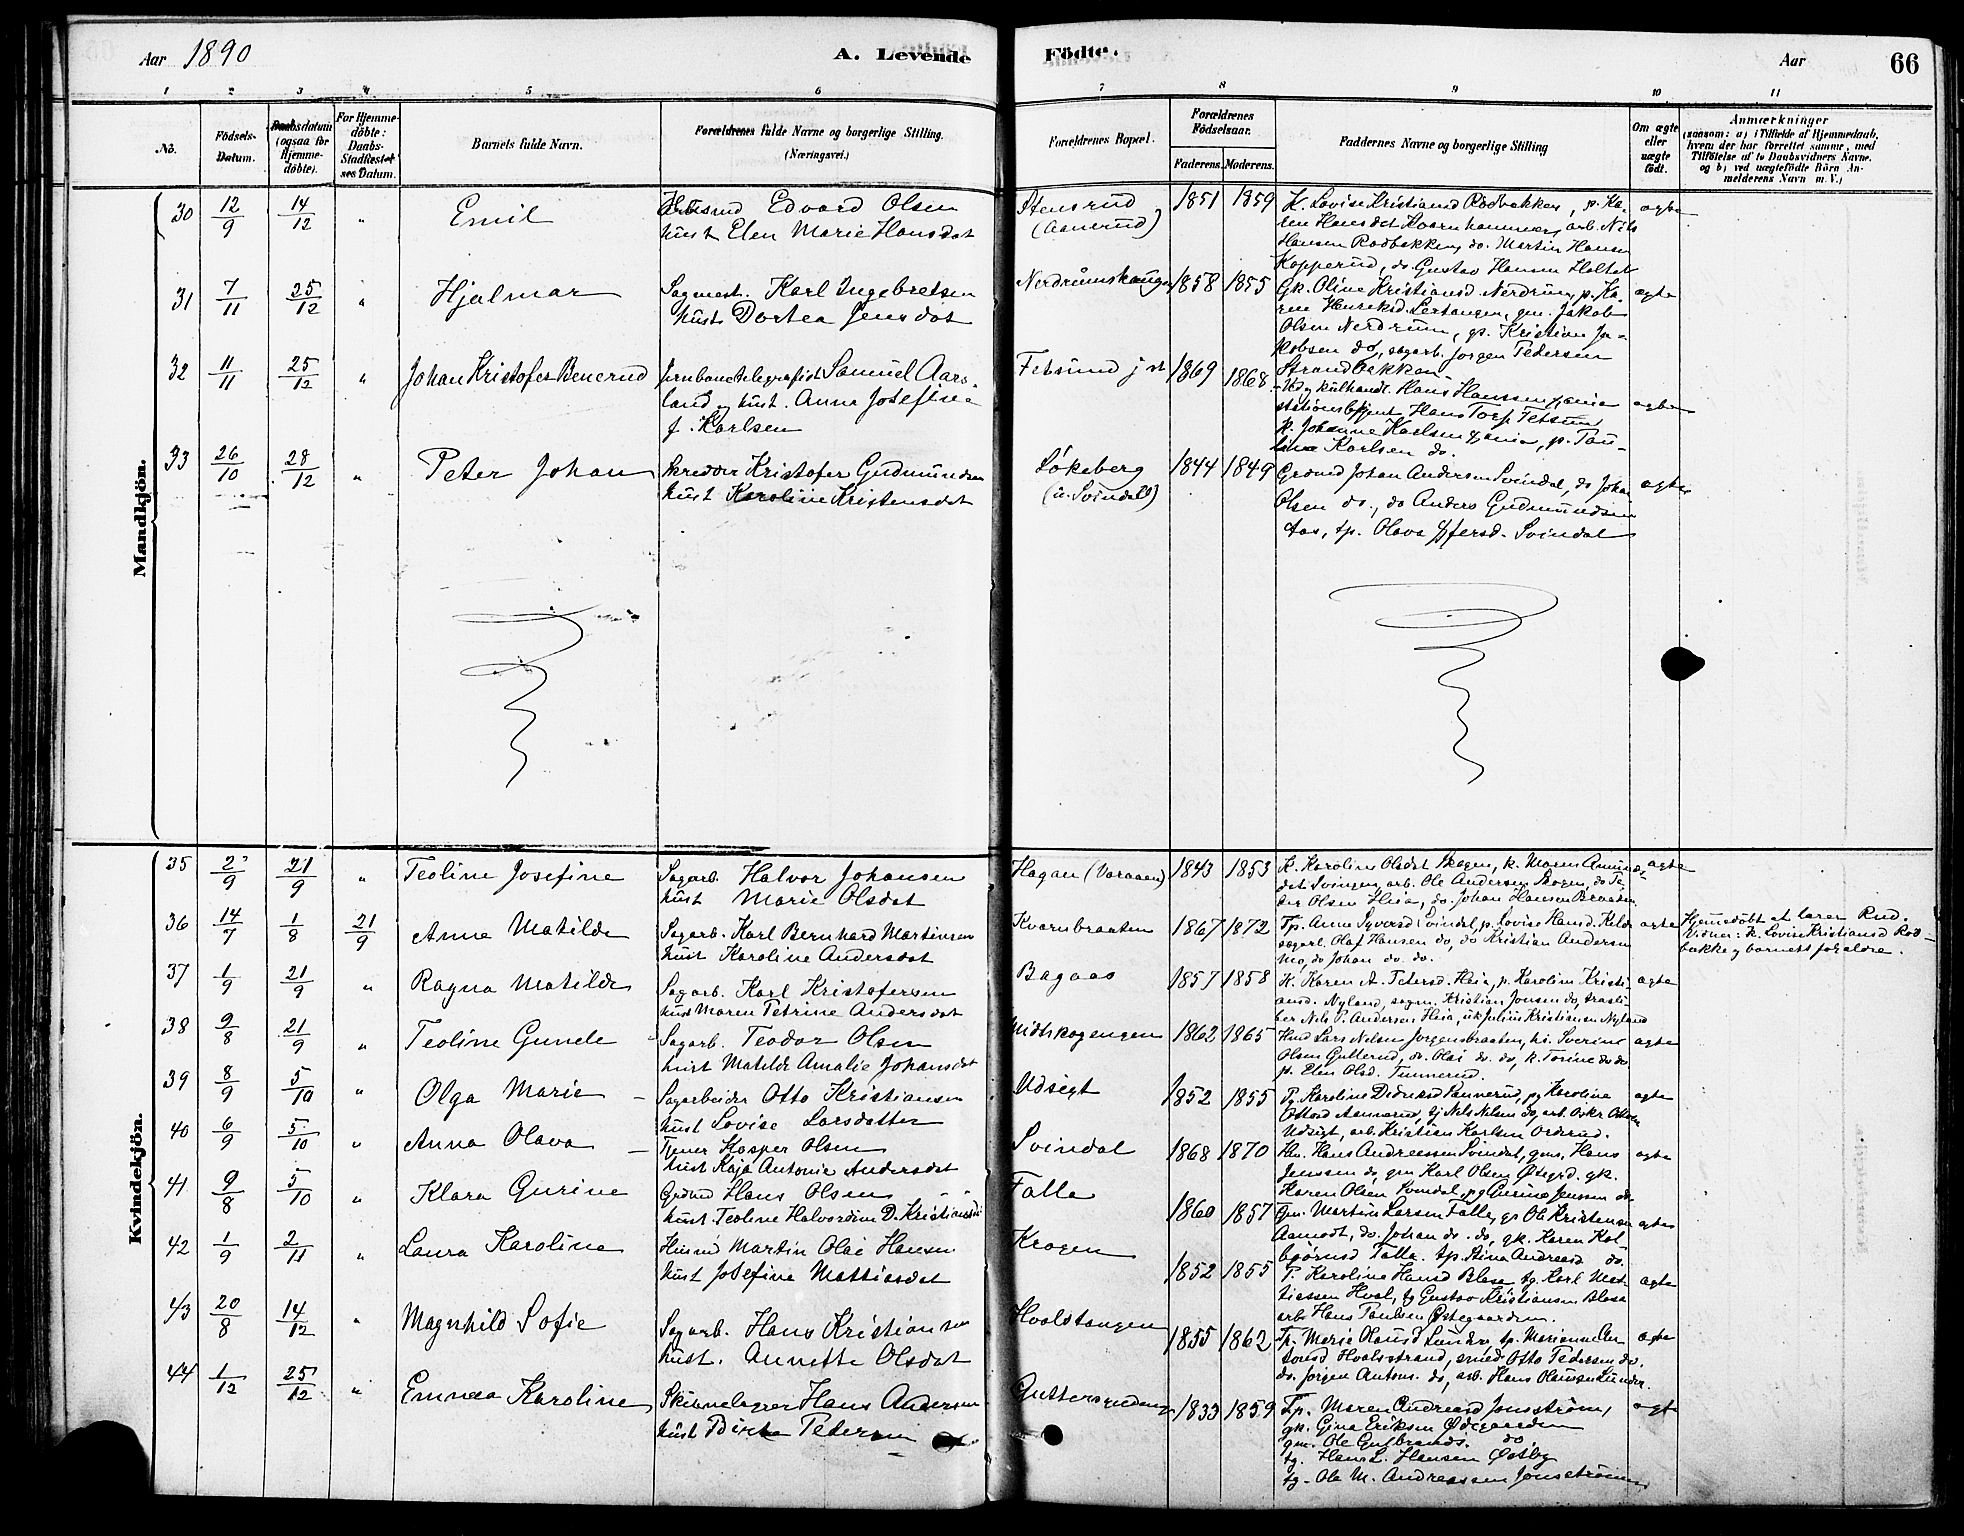 Aar 1890
A. Levende
Födte.
Aar
66
1 2 3 4 5 6 7 8 9 10 11
No.
Födsels-
Datum.
Daabsdatum
(ogsaa for
Hjemme-
döbte).
For Hjemme-
döbte:
Daabs-
Stadfæstel-
ses Datum.
Barnets fulde Navn.
Forældrenes fulde Navne og borgerlige Stilling.
(Næringsvei.)
Forældrenes Bopæl.
Forældrenes
Födselsaar.
Faderens. Moderens.
Faddernes Navne og borgerlige Stilling
Om ægte
eller
uægte
födt.
Anmærkninger
(saasom: a) i Tilfælde af Hjemmedaab,
hvem der har forrettet samme, med
Tilföielse af to Daabsvidners Navne.
og b) ved uægtefödte Börn An-
melderens Navn m. V.)
Mandkjön.
30 12/9 14/12 " Emil
Edvard Olsen
hust Elen Marie Hansdat
Stensrud
(Aanerud)
1851 1859
K. Lovise Kristiansd Rodbakken, p. Ka-
ren Hansdet Kvarnhammer, arb. Nils
Hansen Rodbakken, do. Martin Hansen
Kopperud, do. Gustav Hansen Holtet
ægte
31 7/11 25/12 " Hjalmar
Sagmest. Karl Ingebretsen
hust Dortea Jensdat
Nerdrumshaugen
1858 1855
Gk. Oline Kristiansd Nerdrum, p. Ka-
ren Henriksd. Lertangen, gm. Jakob
Olsen Nerdrum, gs. Kristian Ja-
kobsen do, sagarb. Jørgen Pedersen
Strandbakken
ægte
32 11/11 25/12 " Johan Kristofer Benerud
Jernbanetelegrafist Samuel Aars-
land, hust. Anna Josefine
f. Karlsen
Fetsund j st
1869 1868
Ved og kulhandl. Hans Hanssen Xania
stationsbetjent Hans Torp Fetsund,
k. Johanne Karlsen Xania, p. Pau-
line Karlsen do.
ægte
33 26/10 28/12 " Peter Johan
Skredder Kristofer Gudmundsen
hust Karoline Kristensdat
Løkeberg
(u. Svindal)
1844 1849
Grdmd Johan Andersen Svindal, do Johan
Olsen do., do Anders Gudmundsen
Aas, tp. Olava Xfersd. Svindal
ægte
Kvindekjön.
35 2/9 21/9 " Teoline Josefine
Sagarb. Halvor Johansen
hust Marie Olsdat
Hagan (Varaaen)
1843 1853
K. Karoline Olsdat Skogen, k. Maren Amunds-
dat Svingen, arb. Ole Andersen Skogen, do Pe-
der Olsen Heia, do. Johan Hansen Braaten
ægte
36 14/7 1/8 21/9 Anna Matilde
Sagarb. Karl Bernhard Martinsen
hust Karoline Andersdat
Kvarnbraaten
1867 1872
Tp. Anne Syversd Svindal, p. Lovise Hansd.
sagarb. Olaf Hansen do, do Kristian Andersen
Mo, do Johan do. do.
ægte
Hjemmedøbt af lærer Rud.
Vidner: k. Lovise Kristiansd Rod-
bakken og barnets forældre.
37 1/9 21/9 " Ragna Matilde
Sagarb. Karl Kristofersen
hust Maren Petrine Andersdat
Bagaas
1857 1858
K. Karen A. Petersd. Heia, p. Karoline Kristi-
ansd. Nyland, sagm. Kristian Jonsen do,
Nils P. Andersen Heia, uk Julius Kristiansen Nyland
ægte
38 9/8 21/9 " Teoline Gunele
Sagarb. Teodor Olsen
hust Matilde Amalie Johansdat
Midtskogengen
1862 1865
Hmd Lars Nilsen Jørgensbraaten, hs. Sverine
Olsen Gulterud, do. Olai do. do, k. Torine do do
p. Elen Olsd. Tunnerud.
ægte
39 8/9 5/10 " Olga Marie
Sagarbeider Otto Kristiansen
hust Lovise Larsdatter
Udsigt
1852 1855
Pg. Karoline Pannerud, pg Karoline
Ottosd Aannerud, tj Nils Nilsen do, arb. Oskr Olsen
Udsigt, arb. Kristian Karlsen Orderud.
ægte
40 6/9 5/10 " Anna Olava
Tjener Kasper Olsen
hust Kaja Antonie Andersdat
Svindal
1868 1870
Hm. Hans Andreassen Svindal, gms. Hans
Jenssen do, gm Karl Olsen Østgrd. gk.
Karen Olsen Svindal, pg Gurine Jenssen do.
ægte
41 9/8 5/10 " Klara Gurine
Grdmd Hans Olsen
hust. Teoline Halvordine D. Kristiansd
Falla
1860 1857
Gm. Martin Larsen Falla, gs Ole Kristensen
Aamodt, do. Johan do. do, gk. Karen Kol-
bjørnsd Falla. tp. Stina Andreasd do.
ægte
42 1/9 2/11 " Laura Karoline
Husmd Martin Olai Hansen
hust Josefine Mattiasdat
Krogen
1852 1855
P. Karoline Hansd Blesa tg. Karl Mat-
tiassen Hval, tg Gustav Kristiansen Blesa
arb Hans Paulsen Østegaarden.
ægte
43 20/8 14/12 " Magnhild Sofie
Sagarb. Hans Kristiansen
hust. Annette Olsdat
Hvalstangen
1855 1862
Tp. Marie Olausd Lunder, tp. Marianne An-
tonsd Hvalsstrand, smed Otto Pedersen do.
do. Jørgen Antons. do, arb. Hans Olausen Lunder.
ægte
44 1/12 25/12 " Emma Karoline
Skinnelægger Hans Andersen
hust Birte Pedersen
Guttersrudeng
1833 1859
Tp. Maren Andreasd Jonsstrøm,
gk. Gina Eriksen Ødegaarden
gm. Ole Gulbrands. do.
tg. Hans L. Hansen Østby
tg. Ole M. Andreassen Jonsstrøm
ægte